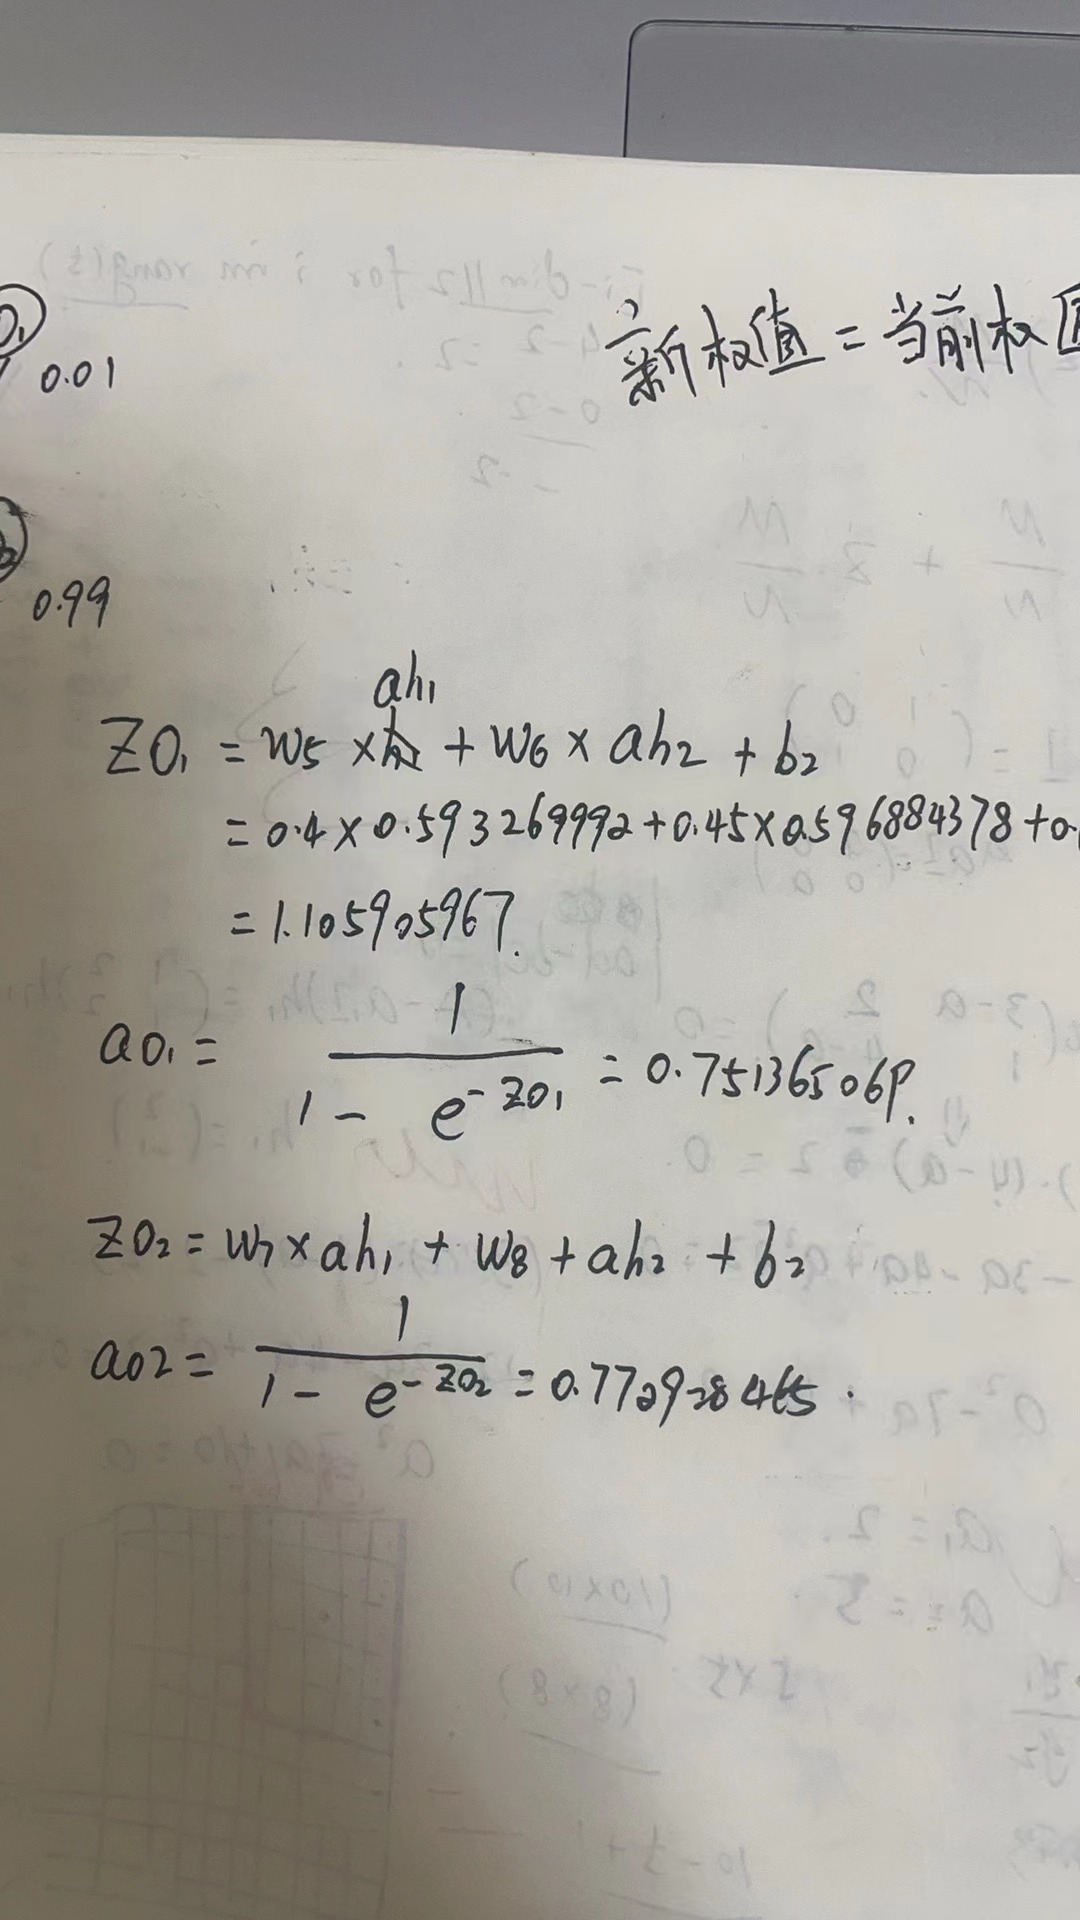 0.01
新权值 = 当前权
0.99
ah₁
ZO₁ = W5 × + W6 × ah2 + b2
= 0.4 × 0.593269992 + 0.45 × 0.596884378 + 0.
= 1.105905967.
aO₁ = 1 / 1 - e^-ZO₁ = 0.751365069.
ZO2 = W7 × ah₁ + W8 + ah2 + b2
aO2 = 1 / 1 - e^-ZO2 = 0.772928465.